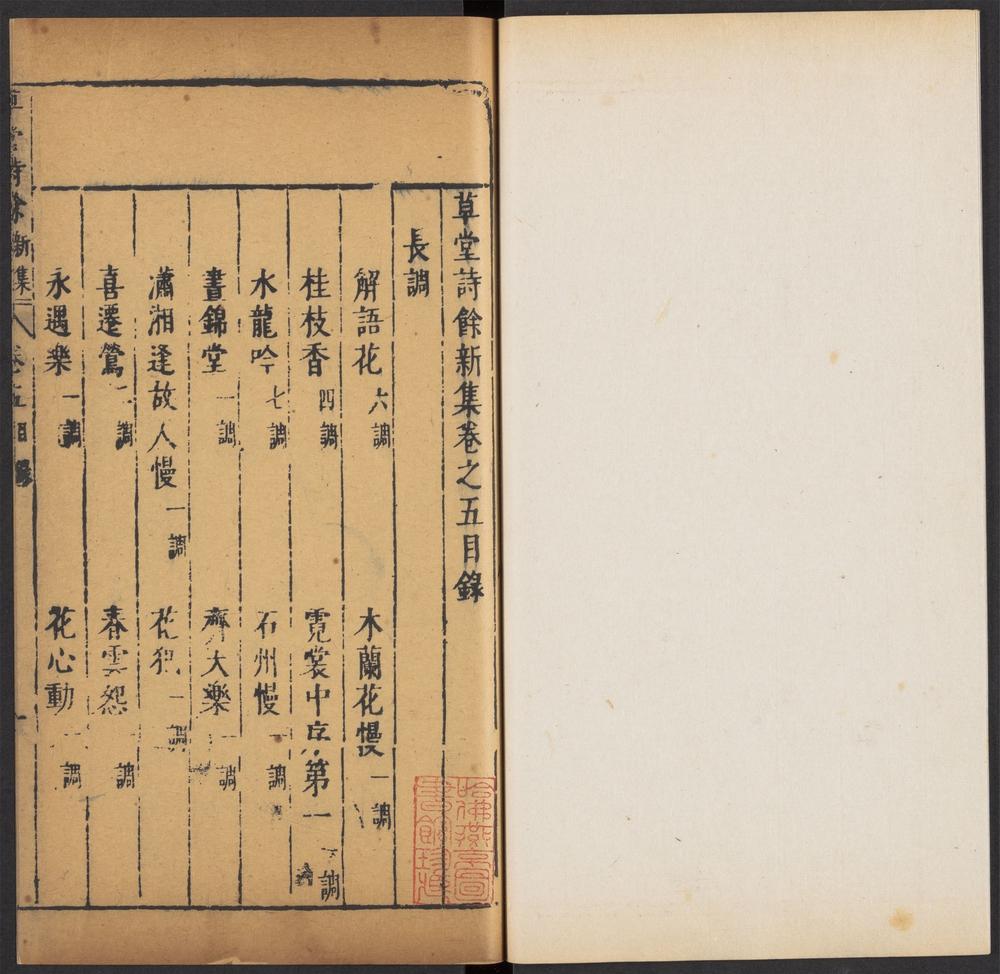 草堂詩餘新集卷之五目錄
長調
解語花 六調 木蘭花慢 一調
桂枝香 四調 霓裳中序第一 調
水龍吟 七調 石州慢 一調
晝錦堂 一調 齊天樂 一調
瀟湘逢故人慢 一調 花犯 一調
喜遷鶯 一調 春雲怨 一調
永遇樂 一調 花心動 一調
草堂詩餘新集 卷五目錄 一
哈佛燕京圖書館珍藏